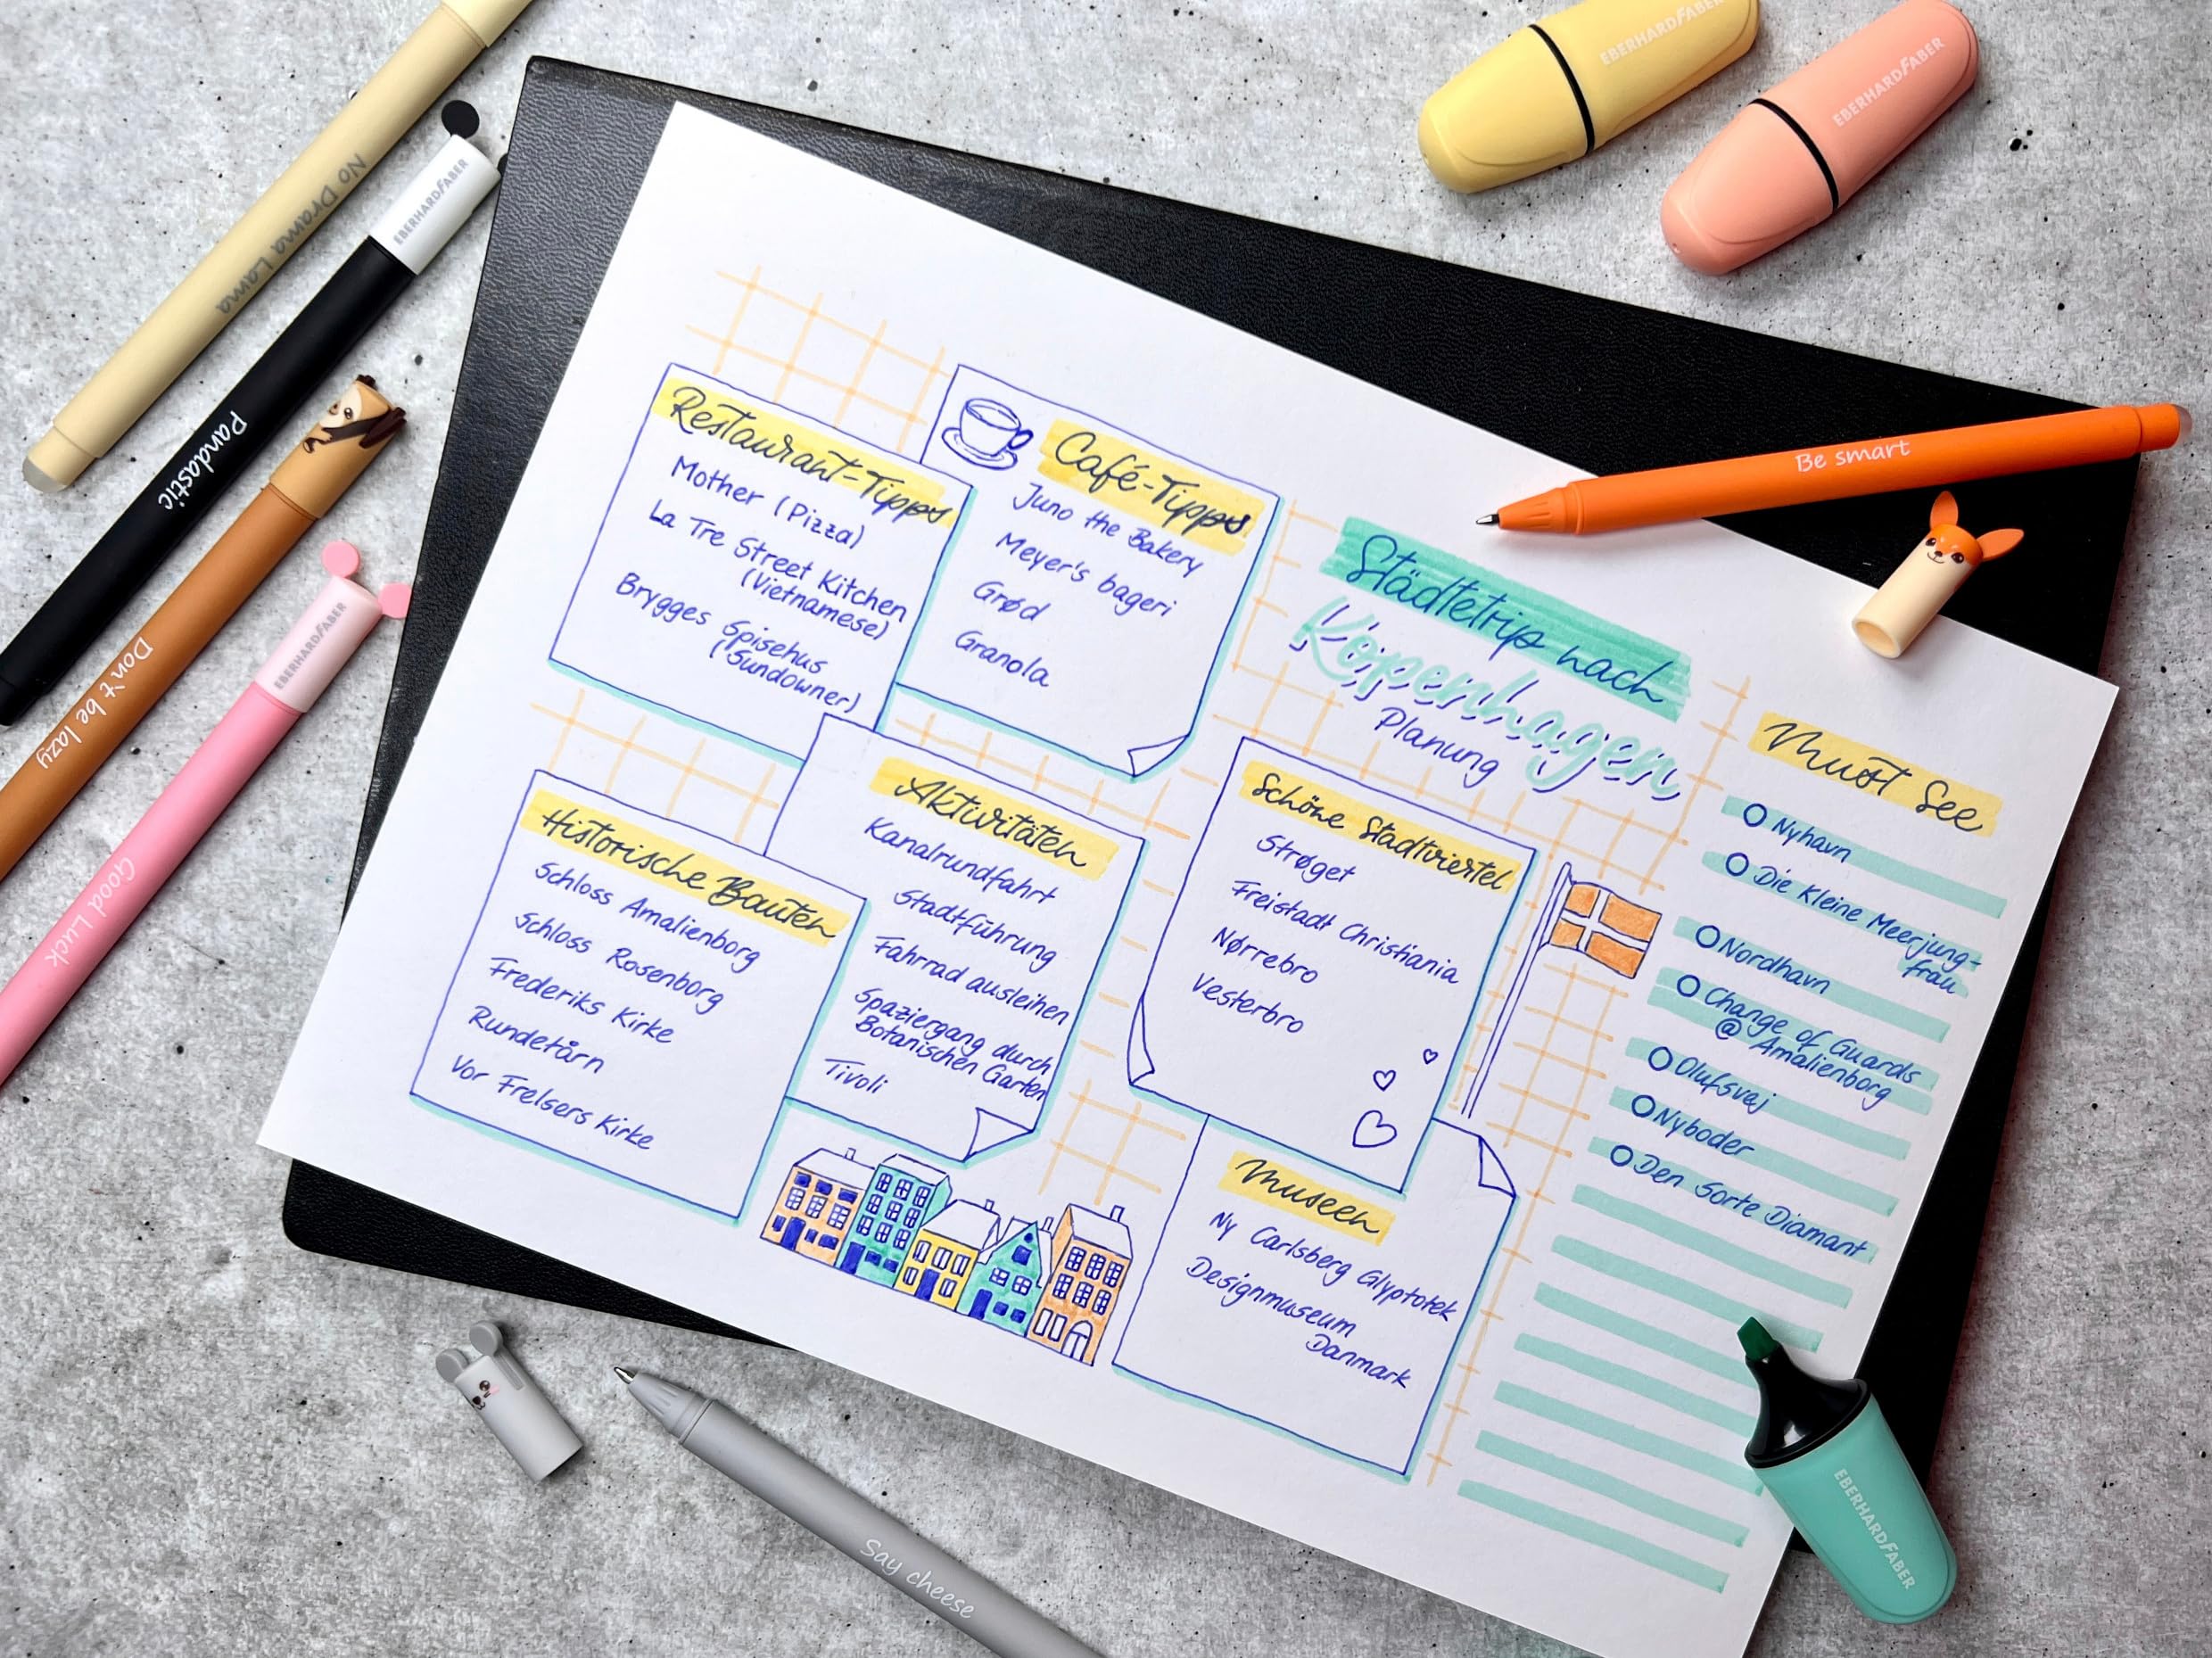 EBERHARDFABER
EBERHARDFABER
No Drama Lama
EBERHARDFABER
Pandastic
Don't be lazy
EBERHARDFABER
Good Luck
Be smart
Städtetrip nach
Kopenhagen
Planung
Restaurant-Tipps
Mother (Pizza)
La Tre Street Kitchen
(Vietnamese)
Brygges Spisehus
(Sundowner)
Café-Tipps
Juno the Bakery
Meyer's bageri
Grød
Granola
Historische Bauten
Schloss Amalienborg
Schloss Rosenborg
Frederiks Kirke
Rundetårn
Vor Frelsers Kirke
Aktivitäten
Kanalrundfahrt
Stadtführung
Fahrrad ausleihen
Spaziergang durch
Botanischen Garten
Tivoli
Schöne Stadtviertel
Strøget
Freistadt Christiania
Nørrebro
Vesterbro
Museen
Ny Carlsberg Glyptotek
Designmuseum
Danmark
Must See
Nyhavn
Die Kleine Meerjung-
frau
Nordhavn
Change of Guards
@ Amalienborg
Olufsvej
Nyboder
Den Sorte Diamant
Say cheese
EBERHARDFABER